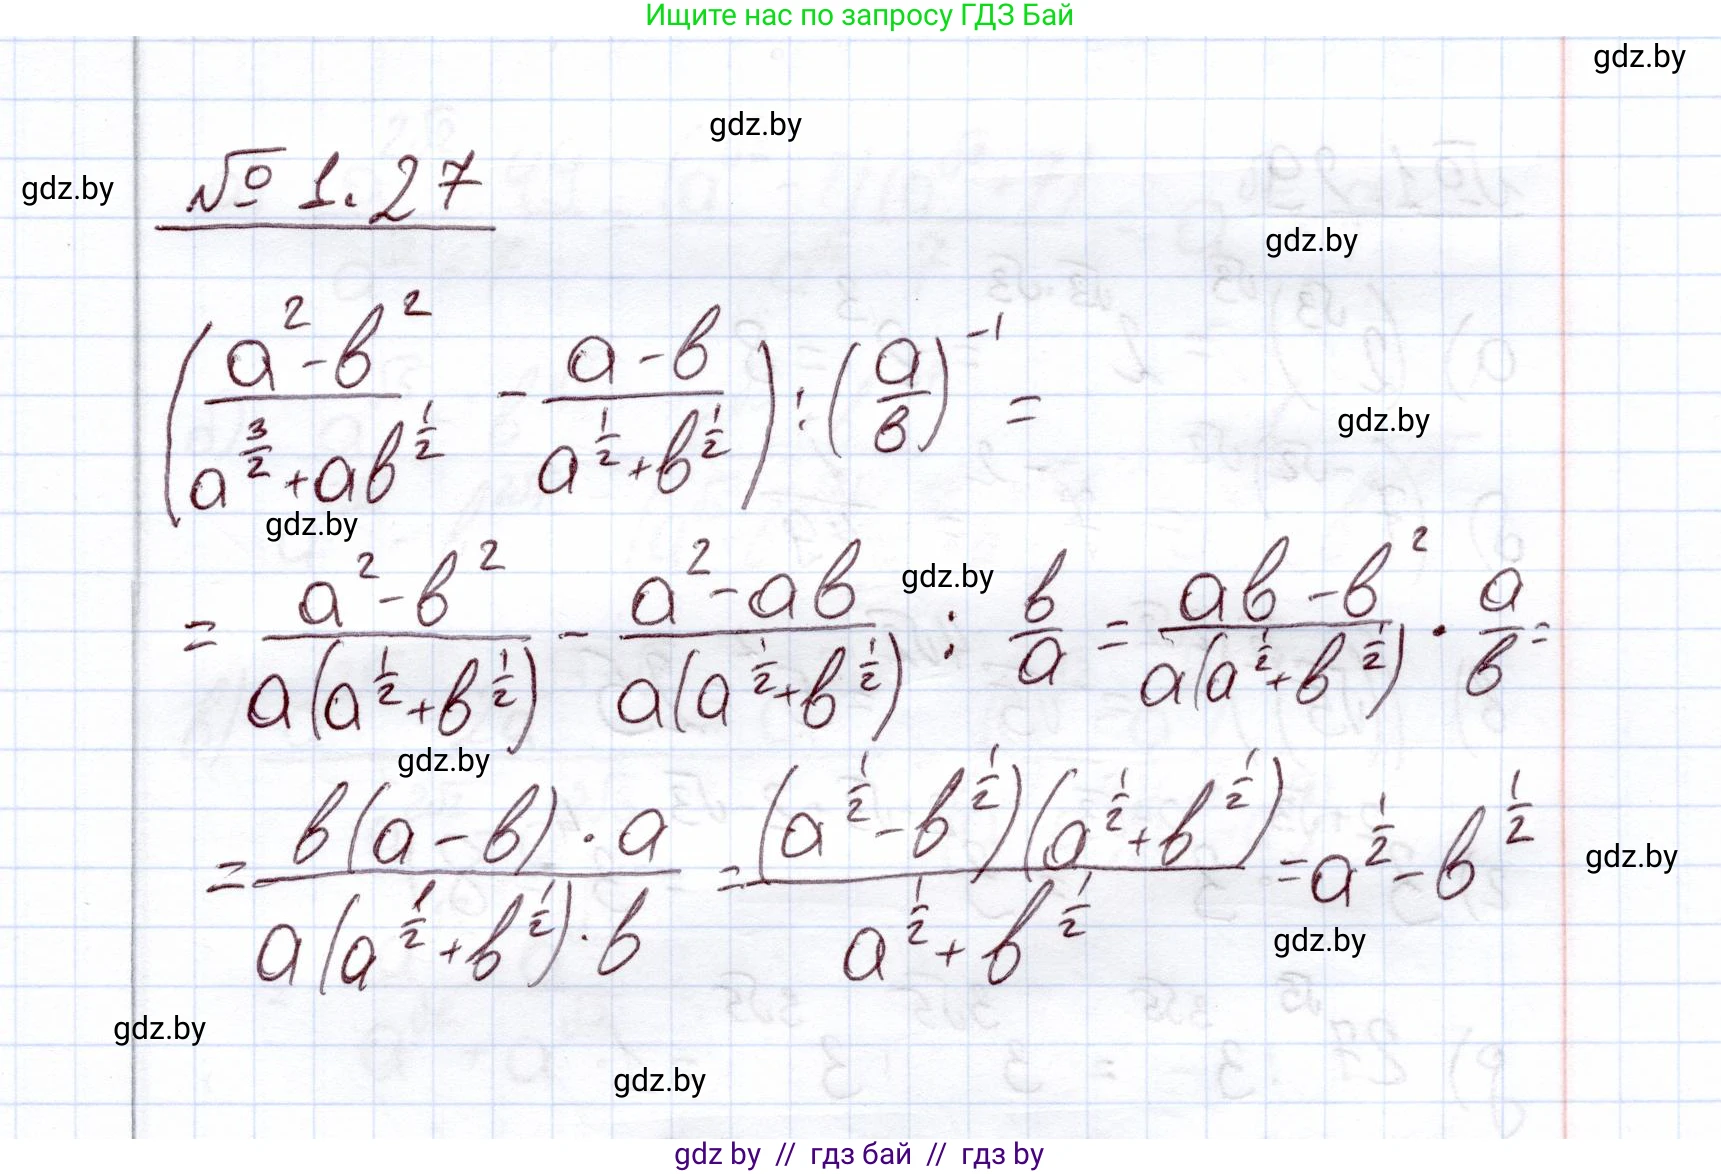 Ищите нас по запросу ГДЗ Бай
gdz.by
gdz.by
gdz.by
№ 1.27
gdz.by
(a² - b²)/(a^(3/2) + ab^(1/2)) - (a - b)/(a^(1/2) + b^(1/2)) ) : (a/b)^(-1) =
gdz.by
gdz.by
gdz.by
= (a² - b²)/(a(a^(1/2) + b^(1/2))) - (a² - ab)/(a(a^(1/2) + b^(1/2))) : b/a = (ab - b²)/(a(a^(1/2) + b^(1/2))) · a/b =
gdz.by
= (b(a - b) · a)/(a(a^(1/2) + b^(1/2)) · b) = ((a^(1/2) - b^(1/2))(a^(1/2) + b^(1/2)))/(a^(1/2) + b^(1/2)) = a^(1/2) - b^(1/2)
gdz.by
gdz.by
gdz.by
gdz.by
gdz by // гдз бай // gdz by